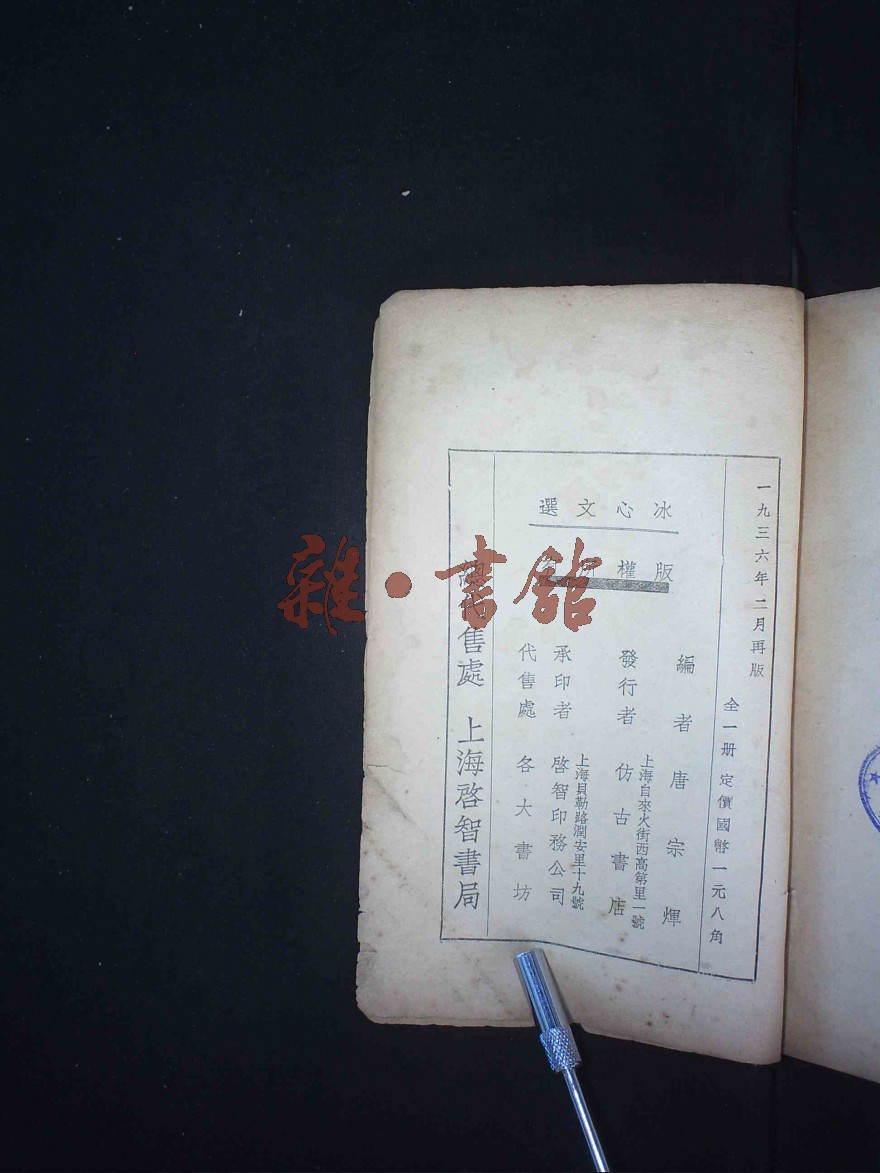 一九三六年二月再版
全一册 定價國幣一元八角
冰心文選
版權所有
編者唐宗煇
上海自來火街西高第里一號
發行者 仿古書店
上海貝勒路潤安里十九號
承印者 啓智印務公司
代售處 各大書坊
總代售處 上海啓智書局
雜·書館